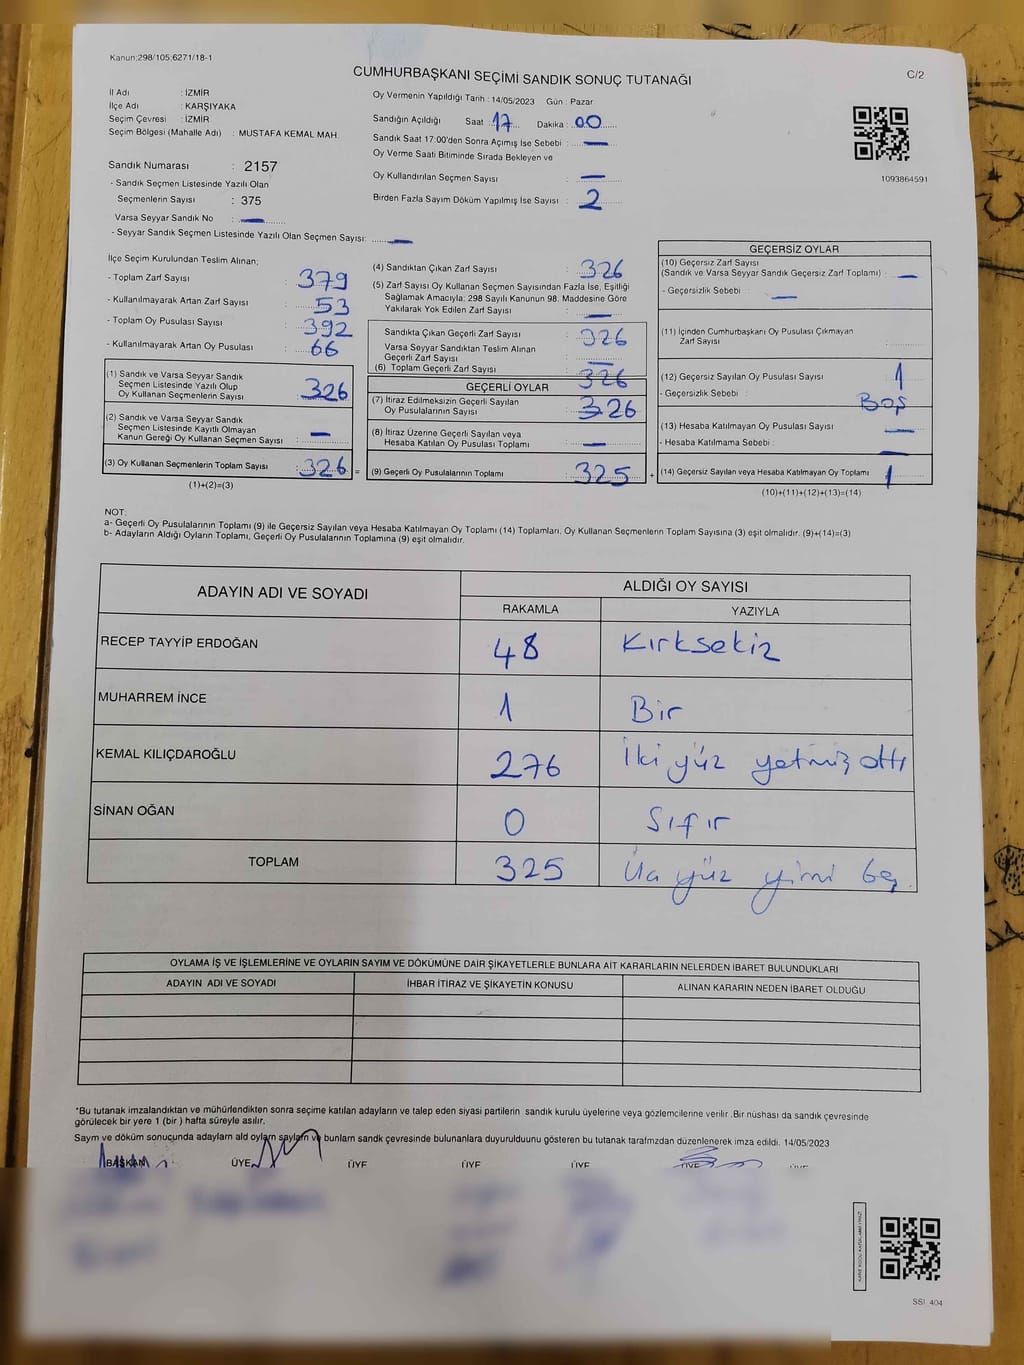 Kanun:298/105;6271/18-1
CUMHURBAŞKANI SEÇİMİ SANDIK SONUÇ TUTANAĞI
C/2
İl Adı : İZMİR
İlçe Adı : KARŞIYAKA
Seçim Çevresi : İZMİR
Seçim Bölgesi (Mahalle Adı) : MUSTAFA KEMAL MAH.
Sandık Numarası : 2157
- Sandık Seçmen Listesinde Yazılı Olan
Seçmenlerin Sayısı : 375
Varsa Seyyar Sandık No : —
- Seyyar Sandık Seçmen Listesinde Yazılı Olan Seçmen Sayısı: —
Oy Vermenin Yapıldığı Tarih : 14/05/2023 Gün : Pazar
Sandığın Açıldığı Saat : 17 Dakika : 00
Sandık Saat 17:00'den Sonra Açılmış İse Sebebi : —
Oy Verme Saati Bitiminde Sırada Bekleyen ve
Oy Kullandırılan Seçmen Sayısı : —
Birden Fazla Sayım Döküm Yapılmış İse Sayısı : 2
1093864591
İlçe Seçim Kurulundan Teslim Alınan;
- Toplam Zarf Sayısı : 379
- Kullanılmayarak Artan Zarf Sayısı : 53
- Toplam Oy Pusulası Sayısı : 392
- Kullanılmayarak Artan Oy Pusulası : 66
(1) Sandık ve Varsa Seyyar Sandık
Seçmen Listesinde Yazılı Olup
Oy Kullanan Seçmenlerin Sayısı : 326
(2) Sandık ve Varsa Seyyar Sandık
Seçmen Listesinde Kayıtlı Olmayan
Kanun Gereği Oy Kullanan Seçmen Sayısı : —
(3) Oy Kullanan Seçmenlerin Toplam Sayısı : 326 =
(1)+(2)=(3)
(4) Sandıktan Çıkan Zarf Sayısı : 326
(5) Zarf Sayısı Oy Kullanan Seçmen Sayısından Fazla İse, Eşitliği
Sağlamak Amacıyla; 298 Sayılı Kanunun 98. Maddesine Göre
Yakılarak Yok Edilen Zarf Sayısı : —
Sandıkta Çıkan Geçerli Zarf Sayısı : 326
Varsa Seyyar Sandıktan Teslim Alınan
Geçerli Zarf Sayısı : —
(6) Toplam Geçerli Zarf Sayısı : 326
GEÇERLİ OYLAR
(7) İtiraz Edilmeksizin Geçerli Sayılan
Oy Pusulalarının Sayısı : 326
(8) İtiraz Üzerine Geçerli Sayılan veya
Hesaba Katılan Oy Pusulası Toplamı : —
(9) Geçerli Oy Pusulalarının Toplamı : 325 +
GEÇERSİZ OYLAR
(10) Geçersiz Zarf Sayısı
(Sandık ve Varsa Seyyar Sandık Geçersiz Zarf Toplamı) : —
- Geçersizlik Sebebi : —
(11) İçinden Cumhurbaşkanı Oy Pusulası Çıkmayan
Zarf Sayısı :
(12) Geçersiz Sayılan Oy Pusulası Sayısı : 1
- Geçersizlik Sebebi : Boş
(13) Hesaba Katılmayan Oy Pusulası Sayısı : —
- Hesaba Katılmama Sebebi : —
(14) Geçersiz Sayılan veya Hesaba Katılmayan Oy Toplamı : 1
(10)+(11)+(12)+(13)=(14)
NOT:
a- Geçerli Oy Pusulalarının Toplamı (9) ile Geçersiz Sayılan veya Hesaba Katılmayan Oy Toplamı (14) Toplamları, Oy Kullanan Seçmenlerin Toplam Sayısına (3) eşit olmalıdır. (9)+(14)=(3)
b- Adayların Aldığı Oyların Toplamı, Geçerli Oy Pusulalarının Toplamına (9) eşit olmalıdır.
ADAYIN ADI VE SOYADI
ALDIĞI OY SAYISI
RAKAMLA YAZIYLA
RECEP TAYYİP ERDOĞAN 48 Kırksekiz
MUHARREM İNCE 1 Bir
KEMAL KILIÇDAROĞLU 276 İki yüz yetmiş altı
SİNAN OĞAN 0 Sıfır
TOPLAM 325 Üç yüz yirmi beş
OYLAMA İŞ VE İŞLEMLERİNE VE OYLARIN SAYIM VE DÖKÜMÜNE DAİR ŞİKAYETLERLE BUNLARA AİT KARARLARIN NELERDEN İBARET BULUNDUKLARI
ADAYIN ADI VE SOYADI İHBAR İTİRAZ VE ŞİKAYETİN KONUSU ALINAN KARARIN NEDEN İBARET OLDUĞU
*Bu tutanak imzalandıktan ve mühürlendikten sonra seçime katılan adayların ve talep eden siyasi partilerin sandık kurulu üyelerine veya gözlemcilerine verilir .Bir nüshası da sandık çevresinde
görülecek bir yere 1 (bir ) hafta süreyle asılır.
Sayım ve döküm sonucunda adayların ald oyların sayıların ve bunların sandk çevresinde bulunanlara duyurulduunu gösteren bu tutanak tarafmzdan düzenlenerek imza edildi. 14/05/2023
BAŞKAN ÜYE ÜYE ÜYE ÜYE ÜYE ÜYE
SSI 404